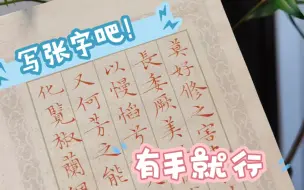 写张字吧!
莫好修之害
長委厥美
以慢慆兮
又何芳之能
化覽椒蘭
有手就行